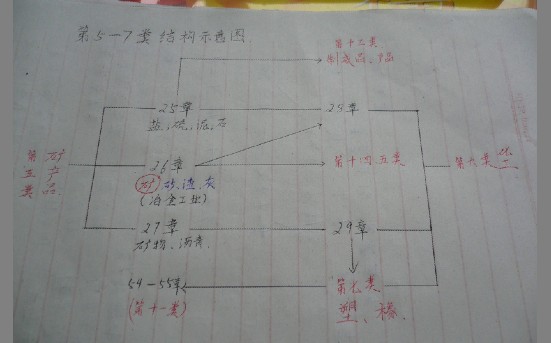 第5-7类结构示意图
第十三类
制成品、
25章
盐、硫、泥、石
28章
第五类
矿产品
26章
矿砂、渣、灰
(冶金工业)
第十四、五类
第六类 化工
27章
矿物、沥青、
29章
54-55章
(第十一类)
第七类
塑、橡、